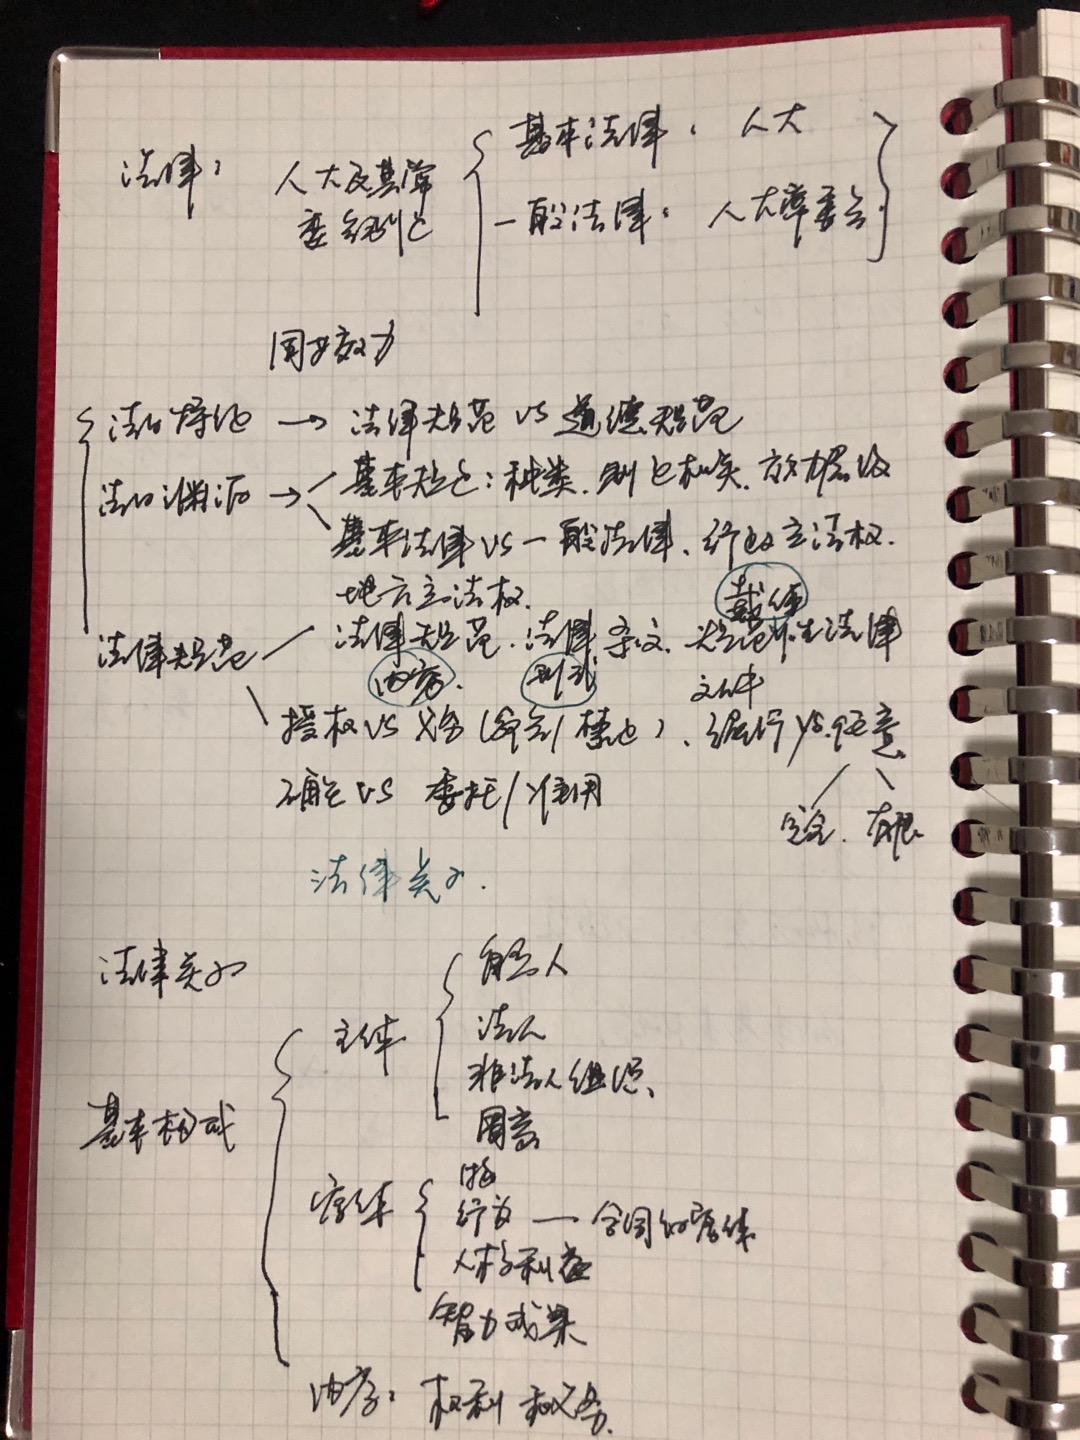 法律： 人大及其常 基本法律： 人大
委会制定 一般法律： 人大常委会
同等效力
法的特征 → 法律规范 VS 道德规范
法的渊源 → 基本规定：种类、制定机关、效力层级
基本法律 VS 一般法律、行政立法权.
地方立法权. 载体
法律规范 法律规范、法律条文、规范性法律
内容. 形式 文件
授权 VS 义务（命令/禁止）、强行 VS.任意
确定 VS 委托/准用
完全. 有限
法律关系.
法律关系 自然人
主体 法人
非法人组织、
基本构成 国家
物
客体 行为 — 合同的客体
人格利益
智力成果
内容： 权利 义务